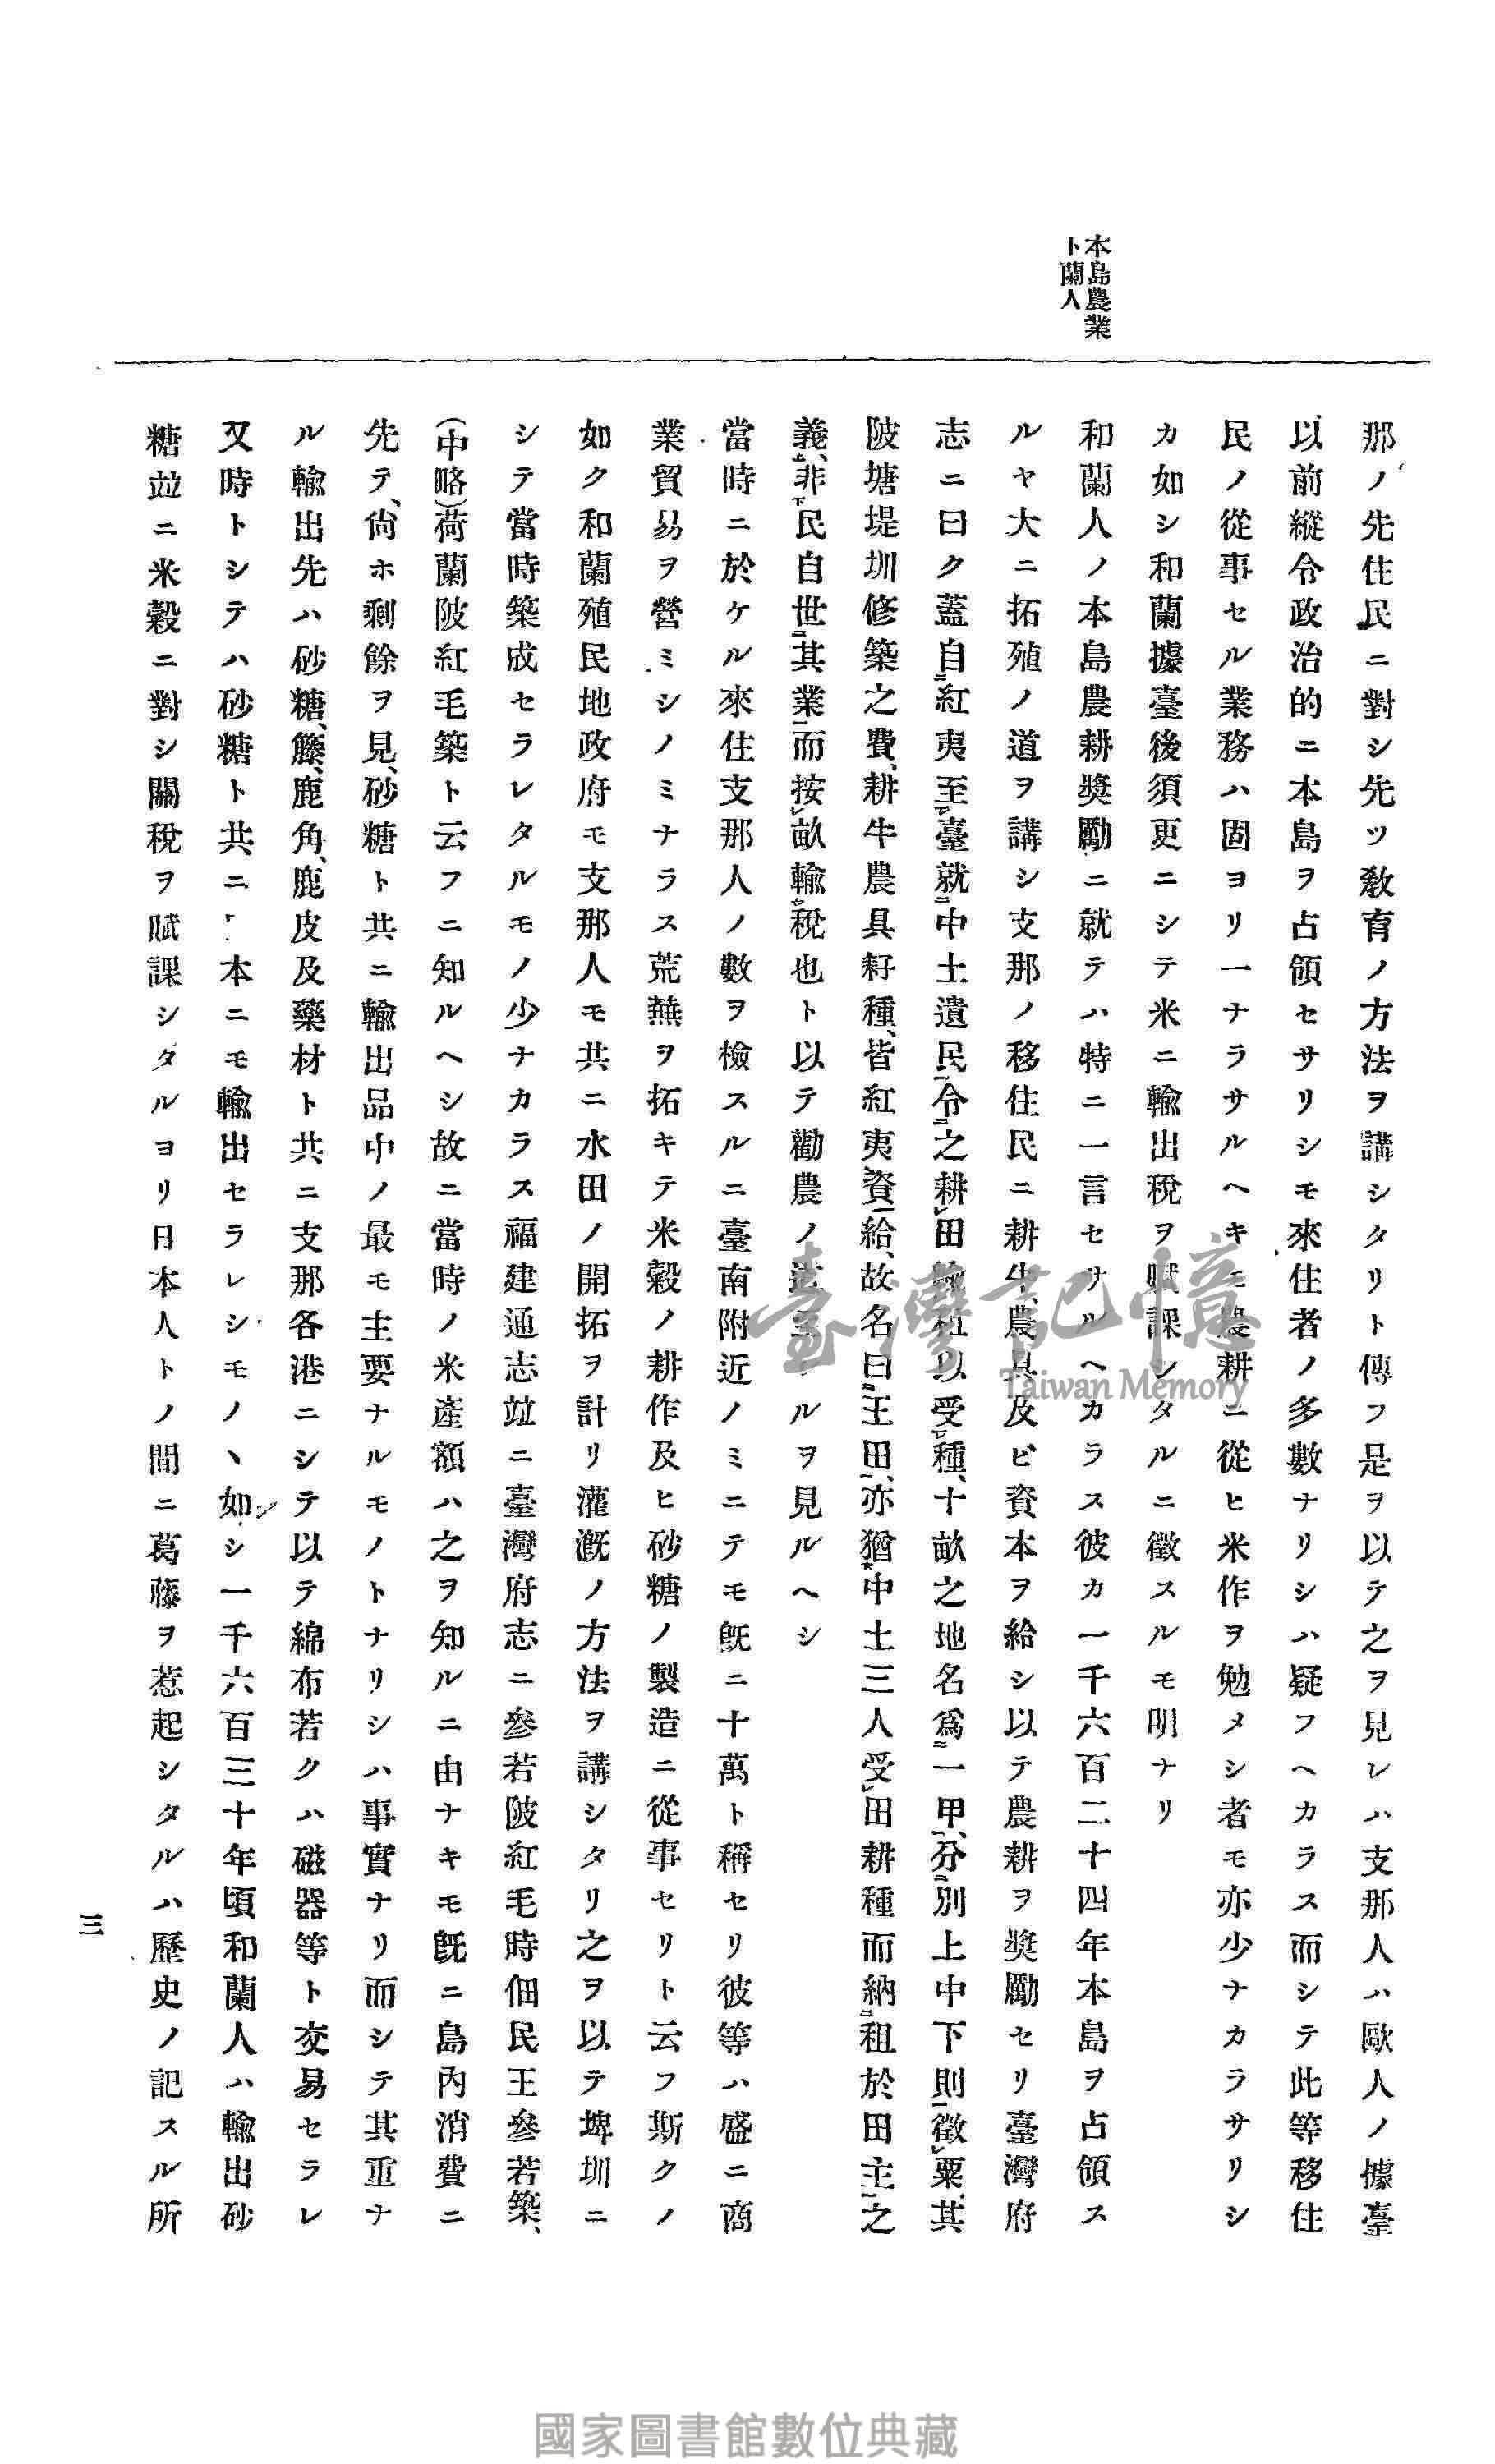 本島農業
ト蘭人
那ノ先住民ニ對シ先ツ敎育ノ方法ヲ講シタリト傳フ是ヲ以テ之ヲ見レハ支那人ハ歐人ノ據臺
以前縱令政治的ニ本島ヲ占領セサリシモ來住者ノ多數ナリシハ疑フヘカラス而シテ此等移住
民ノ從事セル業務ハ固ヨリ一ナラサルヘキモ農耕ニ從ヒ米作ヲ勉メシ者モ亦少ナカラサリシ
カ如シ和蘭據臺後須更ニシテ米ニ輸出稅ヲ賦課シタルニ徵スルモ明ナリ
和蘭人ノ本島農耕奬勵ニ就テハ特ニ一言セサルヘカラス彼カ一千六百二十四年本島ヲ占領ス
ルヤ大ニ拓殖ノ道ヲ講シ支那ノ移住民ニ耕牛、農具及ビ資本ヲ給シ以テ農耕ヲ奬勵セリ臺灣府
志ニ曰ク蓋自紅夷至臺就中土遺民令之耕田輸租以受種、十畝之地名爲一甲、分別上中下則徵粟其
陂塘堤圳修築之費、耕牛農具耔種、皆紅夷資給、故名曰王田、亦猶中土三人受田耕種而納租於田主之
義、非民自世其業而按畝輸稅也ト以テ勸農ノ法至レルヲ見ルヘシ
當時ニ於ケル來住支那人ノ數ヲ檢スルニ臺南附近ノミニテモ旣ニ十萬ト稱セリ彼等ハ盛ニ商
業貿易ヲ營ミシノミナラス荒蕪ヲ拓キテ米穀ノ耕作及ヒ砂糖ノ製造ニ從事セリト云フ斯クノ
如ク和蘭殖民地政府モ支那人モ共ニ水田ノ開拓ヲ計リ灌漑ノ方法ヲ講シタリ之ヲ以テ埤圳ニ
シテ當時築成セラレタルモノ少ナカラス福建通志竝ニ臺灣府志ニ參若陂紅毛時佃民王參若築、
(中略)荷蘭陂紅毛築ト云フニ知ルヘシ故ニ當時ノ米產額ハ之ヲ知ルニ由ナキモ旣ニ島內消費ニ
先テ、尙ホ剩餘ヲ見、砂糖ト共ニ輸出品中ノ最モ主要ナルモノトナリシハ事實ナリ而シテ其重ナ
ル輸出先ハ砂糖、籐、鹿角、鹿皮及藥材ト共ニ支那各港ニシテ以テ綿布若クハ磁器等ト交易セラレ
又時トシテハ砂糖ト共ニ本ニモ輸出セラレシモノヽ如シ一千六百三十年頃和蘭人ハ輸出砂
糖竝ニ米穀ニ對シ關稅ヲ賦課シタルヨリ日本人トノ間ニ葛藤ヲ惹起シタルハ歷史ノ記スル所
三
臺灣記憶
Taiwan Memory
國家圖書館數位典藏